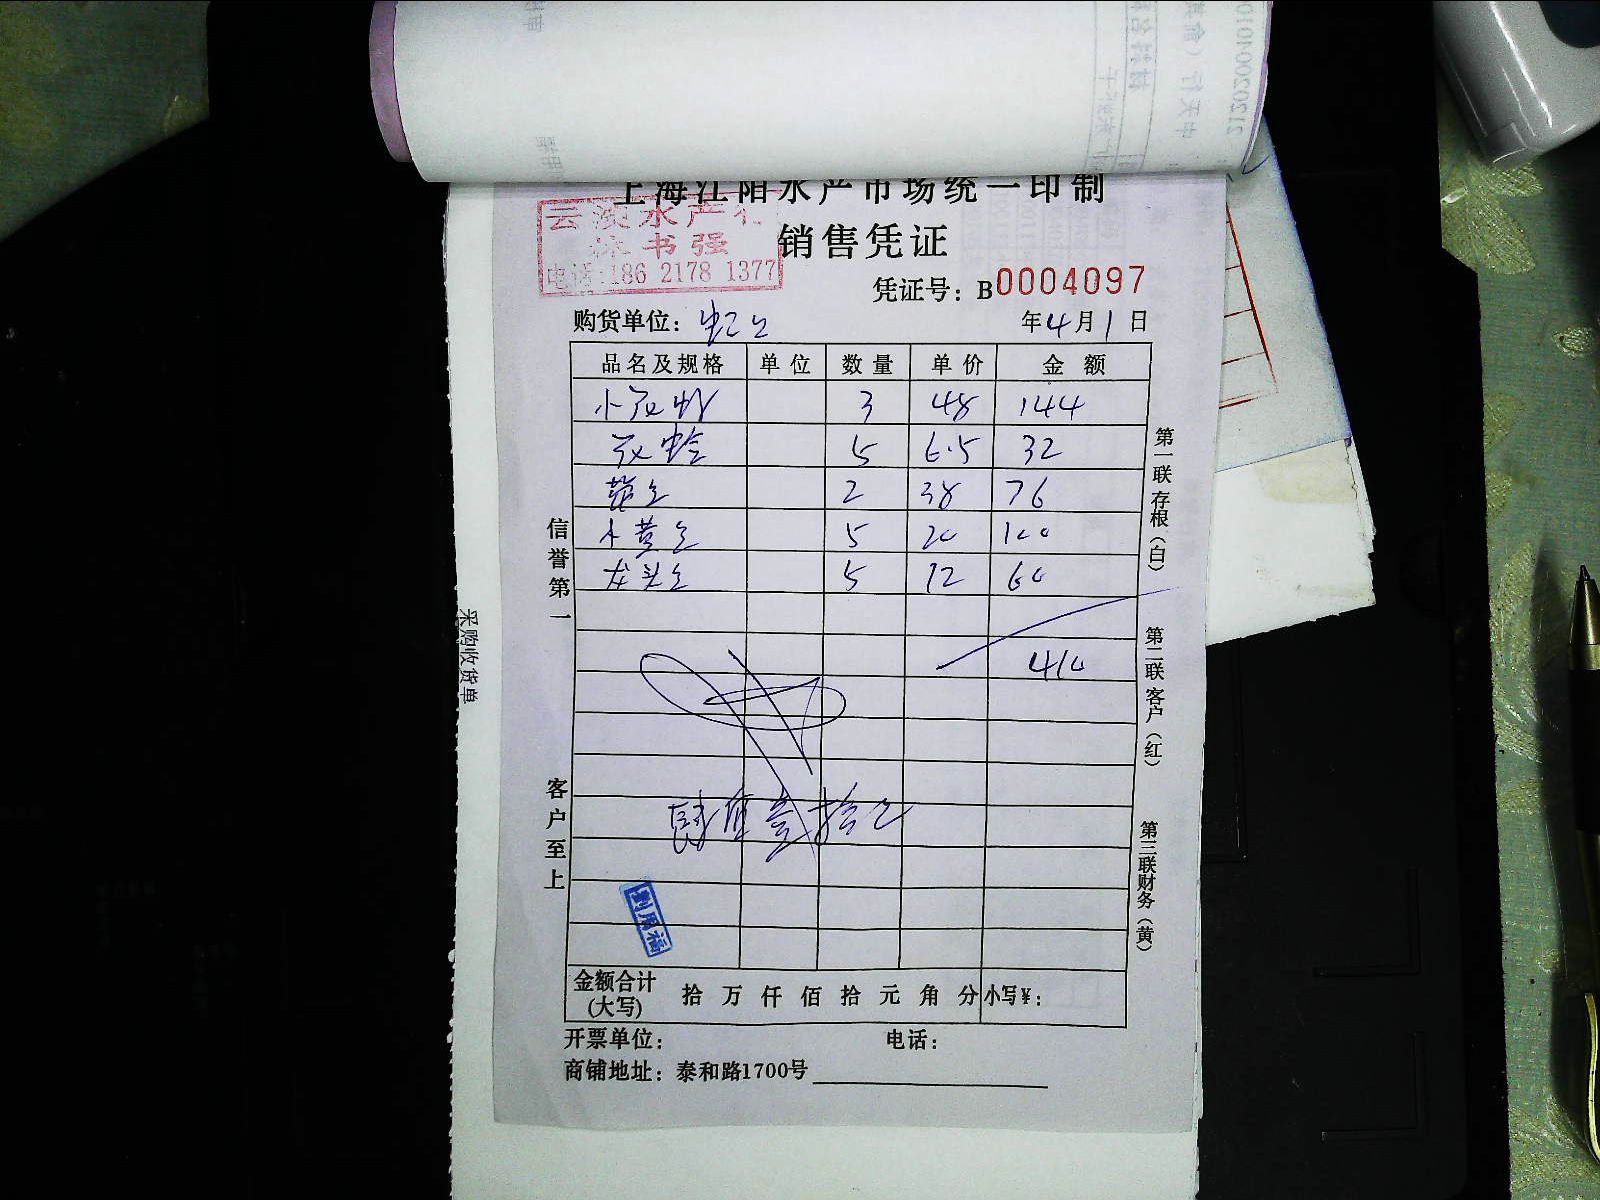 上海江阳水产市场统一印制
云 水产行
林书强
电话:186 2178 1377
销售凭证
凭证号：B0004097
购货单位：虹上
年4月1日
品名及规格 单位 数量 单价 金额
3 48 144
花蛤 5 6.5 32
2 38 76
小黄鱼 5 20 100
龙头鱼 5 12 60
410
肆佰壹拾元
信誉第一
客户至上
第一联存根（白）
第二联客户（红）
第三联财务（黄）
采购收货单
金额合计(大写) 拾 万 仟 佰 拾 元 角 分 小写¥：
开票单位： 电话：
商铺地址：泰和路1700号